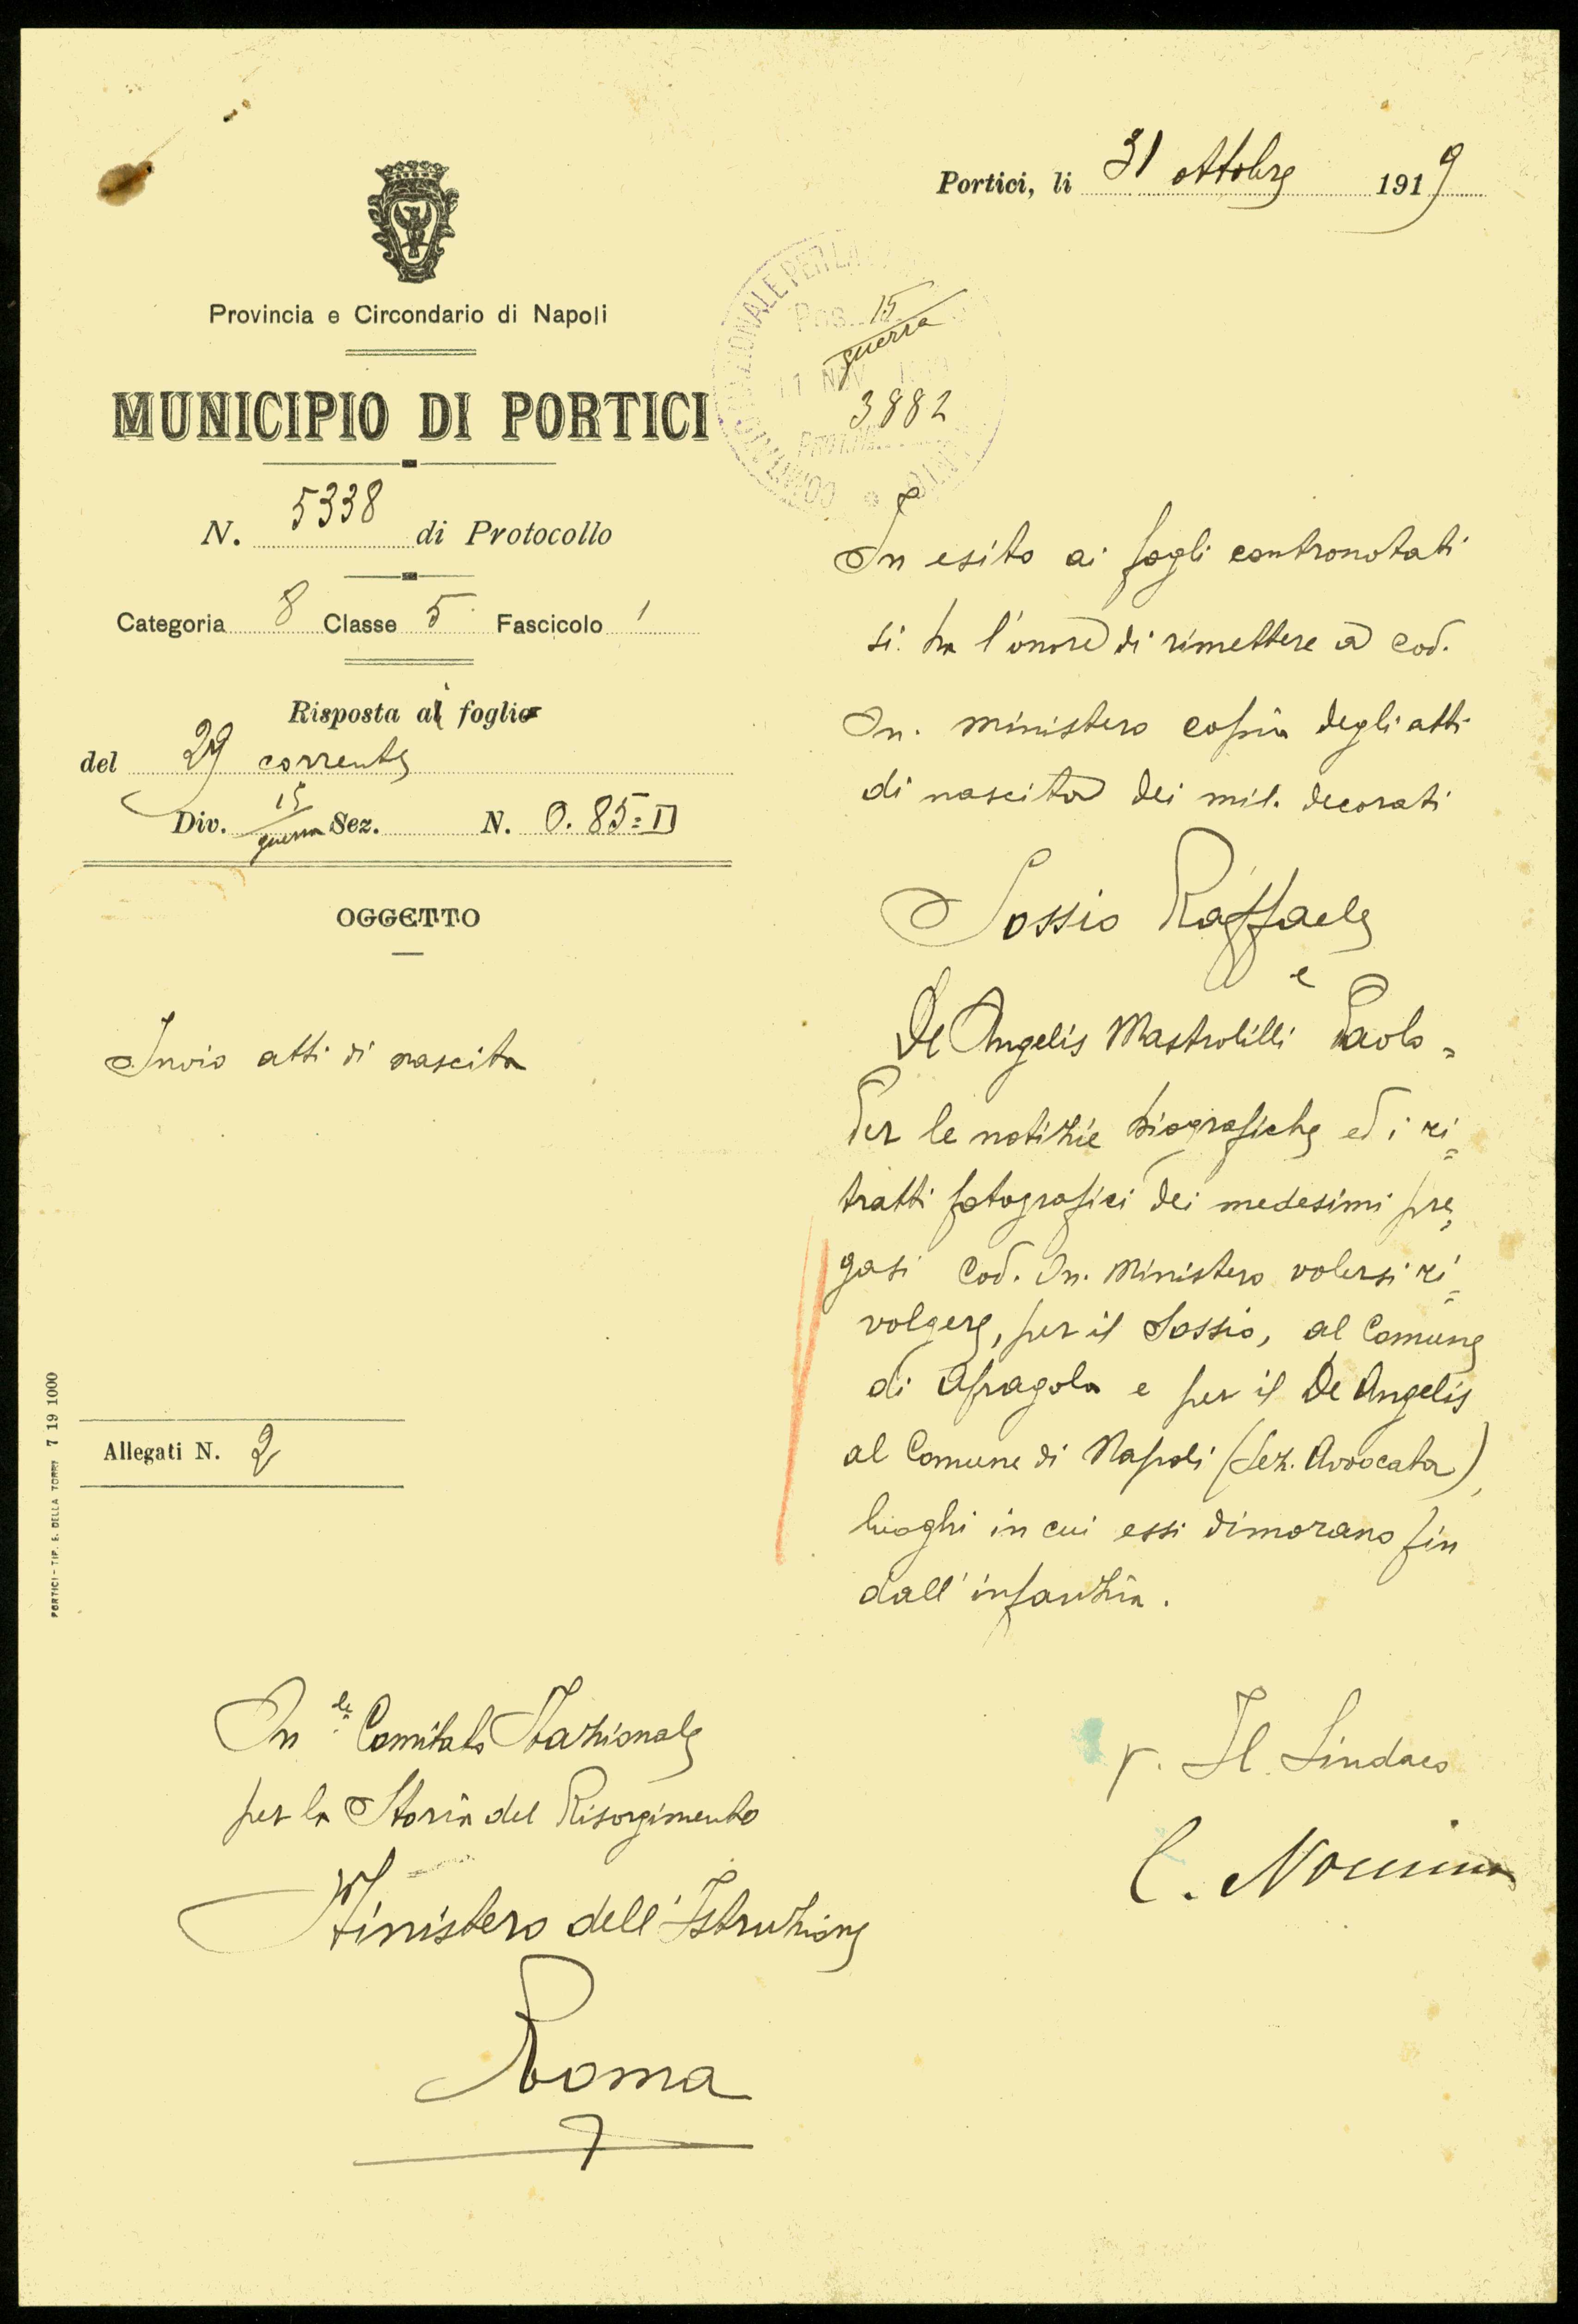 Portici, li 31 ottobre 1919
Provincia e Circondario di Napoli
MUNICIPIO DI PORTICI
N. 5338 di Protocollo
Categoria 8 Classe 5 Fascicolo 1
Risposta ai fogli
del 29 corrente
Div. 15/guerra Sez. N. 0.85=II
OGGETTO
Invio atti di nascita
Allegati N. 2
PORTICI - TIP. E. DELLA TORRE 7 19 1000
On.le Comitato Nazionale
per la Storia del Risorgimento
Ministero dell'Istruzione
Roma
COMITATO NAZIONALE PER LA
Pos. 15
guerra
NOV
3882
PROT.
In esito ai fogli contronotati
si ha l'onore di rimettere a cod.
On. ministero copia degli atti
di nascita dei mil. decorati
Sossio Raffaele
e
De Angelis Mastrolilli Paolo =
Per le notizie biografiche ed i ri=
tratti fotografici dei medesimi pre=
gasi cod. On. Ministero volersi ri=
volgere, per il Sossio, al Comune
di Afragola e per il De Angelis
al Comune di Napoli (Sez. Avvocata),
luoghi in cui essi dimorano fin
dall'infanzia.
p. Il Sindaco
C.